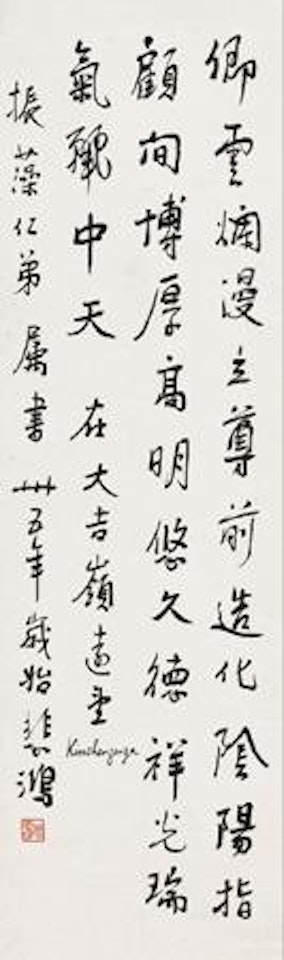 卿雲爛漫立尊前造化陰陽指
顧间博厚高明悠久德祥光瑞
氣中天 在大吉嶺遠望
振藻仁弟屬書 卅五年歲始悲鴻